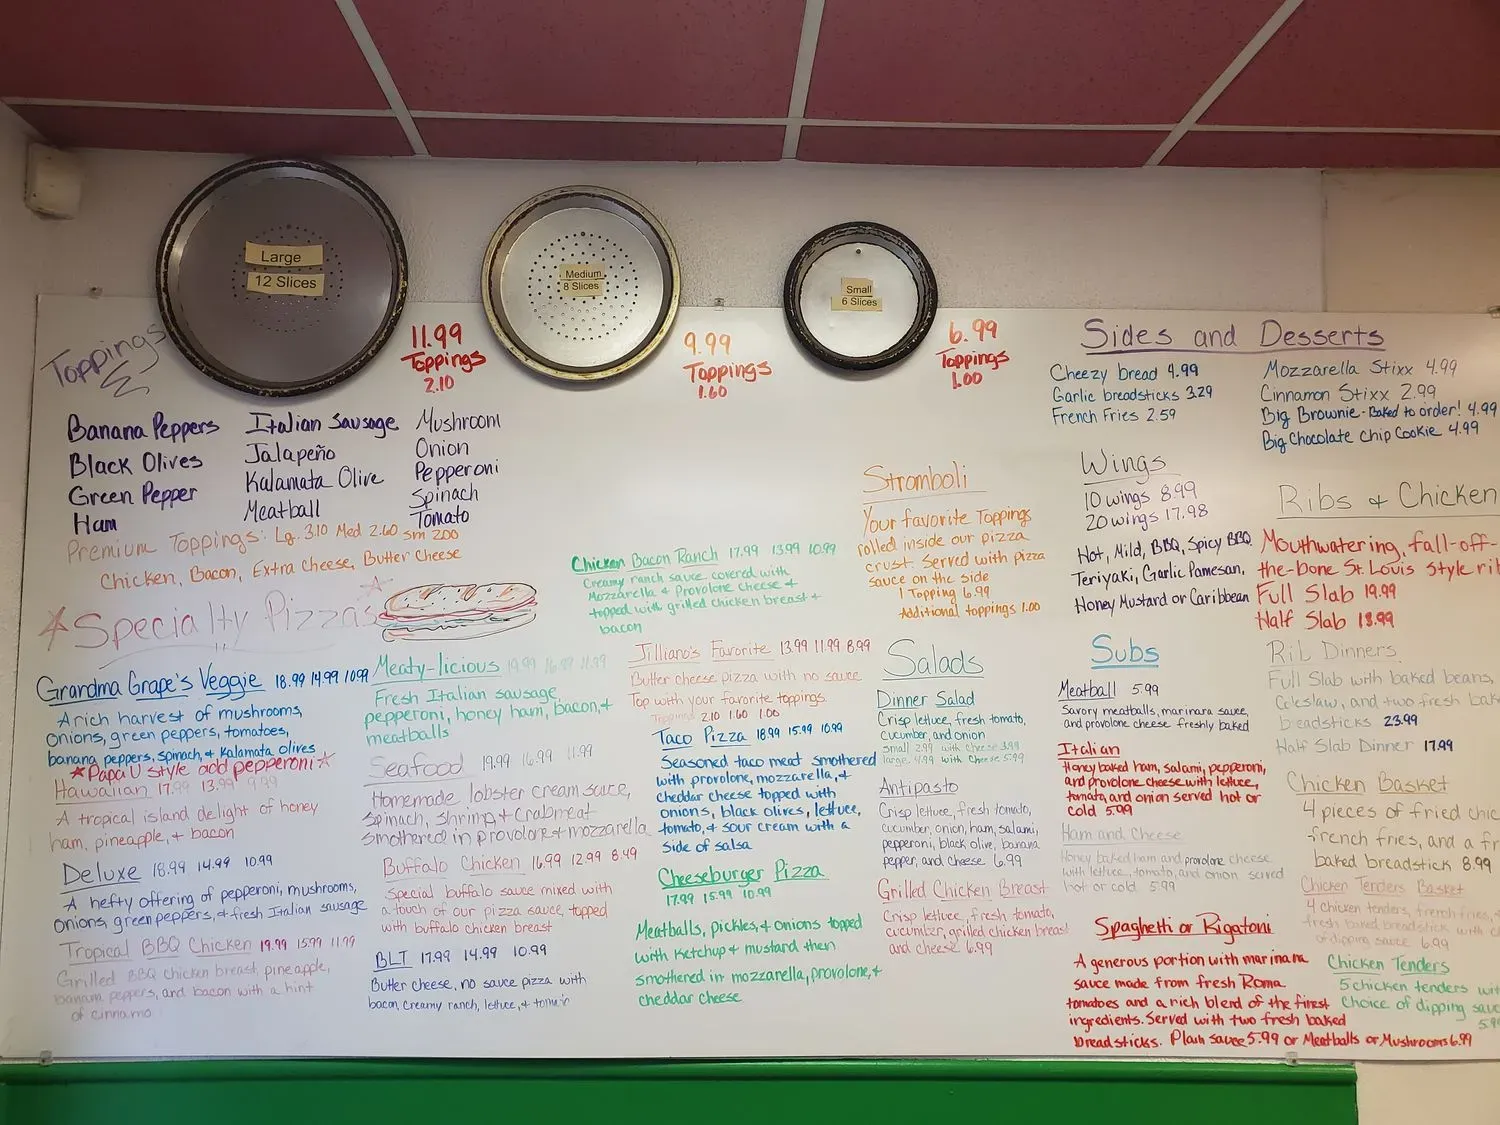 Large
12 Slices
Medium
8 Slices
Small
6 Slices
Toppings
11.99
Toppings
2.10
9.99
Toppings
1.60
6.99
Toppings
1.00
Banana Peppers
Black Olives
Green Pepper
Ham
Italian Sausage
Jalapeño
Kalamata Olive
Meatball
Mushroom
Onion
Pepperoni
Spinach
Tomato
Premium Toppings: Lg. 3.10 Med 2.60 Sm 2.00
Chicken, Bacon, Extra Cheese, Butter Cheese
Specialty Pizzas
Grandma Grape's Veggie 18.99 14.99 10.99
A rich harvest of mushrooms,
onions, green peppers, tomatoes,
banana peppers, spinach, & Kalamata olives
Papa U style add pepperoni
Hawaiian 17.99 13.99 9.99
A tropical island delight of honey
ham, pineapple, & bacon
Deluxe 18.99 14.99 10.99
A hefty offering of pepperoni, mushrooms,
onions, green peppers, & fresh Italian sausage
Tropical BBQ Chicken 19.99 15.99 11.99
Grilled BBQ chicken breast, pineapple,
banana peppers, and bacon with a hint
of cinnamo
Meaty-licious 19.99 16.99 11.99
Fresh Italian sausage,
pepperoni, honey ham, bacon, &
meatballs
Seafood 19.99 16.99 11.99
Homemade lobster cream sauce,
Spinach, shrimp & Crabmeat
Smothered in provolone & mozzarella
Buffalo Chicken 16.99 12.99 8.49
Special buffalo sauce mixed with
a touch of our pizza sauce, topped
with buffalo chicken breast
BLT 17.99 14.99 10.99
Butter cheese, no sauce pizza with
bacon, creamy ranch, lettuce, & tomato
Chicken Bacon Ranch 17.99 13.99 10.99
Creamy ranch sauce covered with
Mozzarella & Provolone Cheese &
topped with grilled chicken breast &
bacon
Jilliano's Favorite 13.99 11.99 8.99
Butter cheese pizza with no sauce
Top with your favorite toppings.
Toppings 2.10 1.60 1.00
Taco Pizza 18.99 15.99 10.99
Seasoned taco meat smothered
with provolone, mozzarella, &
cheddar cheese topped with
onions, black olives, lettuce,
tomato, & sour cream with a
side of salsa
Cheeseburger Pizza
17.99 15.99 10.99
Meatballs, pickles, & onions topped
with Ketchup & mustard then
smothered in mozzarella, provolone, &
cheddar cheese
Stromboli
Your favorite Toppings
rolled inside our pizza
crust. Served with pizza
sauce on the side
1 Topping 6.99
Additional toppings 1.00
Salads
Dinner Salad
Crisp lettuce, fresh tomato,
cucumber, and onion
small 2.99 with cheese 3.99
large 4.99 with Cheese 5.99
Antipasto
Crisp lettuce, fresh tomato,
cucumber, onion, ham, salami,
pepperoni, black olive, banana
pepper, and cheese 6.99
Grilled Chicken Breast
Crisp lettuce, fresh tomato,
cucumber, grilled chicken breast
and cheese 6.99
Sides and Desserts
Cheezy bread 4.99
Garlic breadsticks 3.29
French Fries 2.59
Mozzarella Stixx 4.99
Cinnamon Stixx 2.99
Big Brownie - Baked to order! 4.99
Big Chocolate Chip Cookie 4.99
Wings
10 wings 8.99
20 wings 17.98
Hot, Mild, BBQ, Spicy BBQ
Teriyaki, Garlic Parmesan,
Honey Mustard or Caribbean
Subs
Meatball 5.99
Savory meatballs, marinara sauce,
and provolone cheese freshly baked
Italian
Honey baked ham, salami, pepperoni,
and provolone cheese with lettuce,
tomato, and onion served hot or
cold 5.99
Ham and Cheese
Honey baked ham and provolone cheese
with lettuce, tomato, and onion served
hot or cold 5.99
Spaghetti or Rigatoni
A generous portion with marinara
sauce made from fresh Roma
tomatoes and a rich blend of the finest
ingredients. Served with two fresh baked
breadsticks. Plain sauce 5.99 or Meatballs or Mushrooms 6.99
Ribs & Chicken
Mouthwatering, fall-off-
the-bone St. Louis Style rib
Full Slab 19.99
Half Slab 13.99
Rib Dinners
Full Slab with baked beans,
Coleslaw, and two fresh bake
breadsticks 23.99
Half Slab Dinner 17.99
Chicken Basket
4 pieces of fried chic
french fries, and a fr
baked breadstick 8.99
Chicken Tenders Basket
4 chicken tenders, french fries, &
fresh baked breadstick with c
of dipping sauce 6.99
Chicken Tenders
5 chicken tenders wit
Choice of dipping sauc
5.9